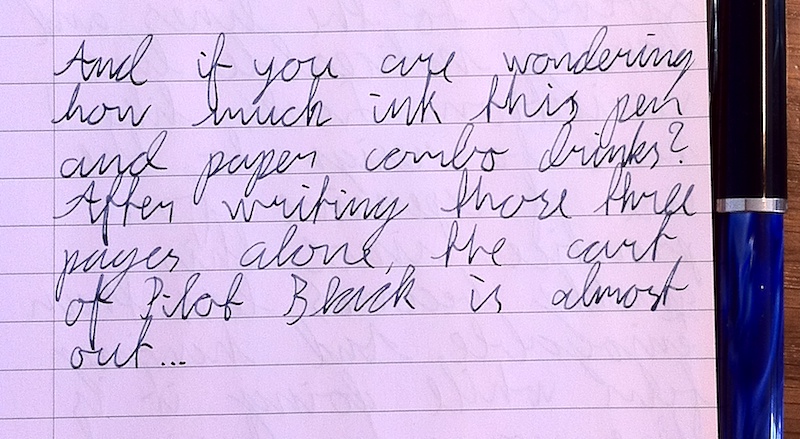 And if you are wondering
how much ink this pen
and paper combo drinks?
After writing those three
pages alone, the cart
of Pilot Black is almost
out...